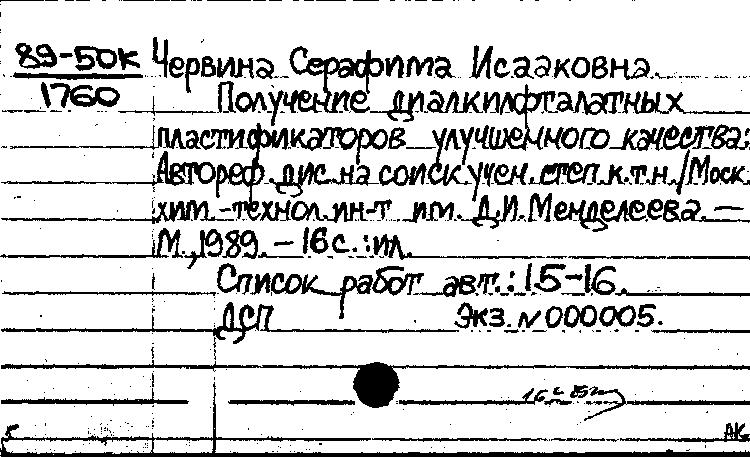 89-50К Червина Серафима Исааковна.
1760 Получение диалкилфталатных
пластификаторов улучшенного качества:
Автореф. дис. на соиск. учен. степ. к.т.н. / Моск.
хим.-технол. ин-т им. Д.И. Менделеева. —
М., 1989. – 16 с. : ил.
Список работ авт.: 15-16.
ДСП Экз. N 000005.
К
АК